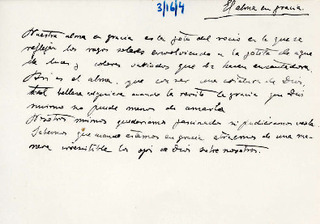 3/16/4
El alma en gracia.
Nuestra alma en gracia es la gota del rocío en la que se
reflejan los rayos solares envolviendo a la gotita de agua
de luz y colores variados que la hacen encantadora.
Así es el alma, que con ser una criatura de Dios,
tal belleza adquiere cuando la reviste la gracia que Dios
mismo no puede menos de amarla.
Nosotros mismos quedaríamos fascinados si pudiéramos verla.
Sabemos que cuando estamos en gracia atraemos de una ma-
nera irresistible los ojos de Dios sobre nosotros.